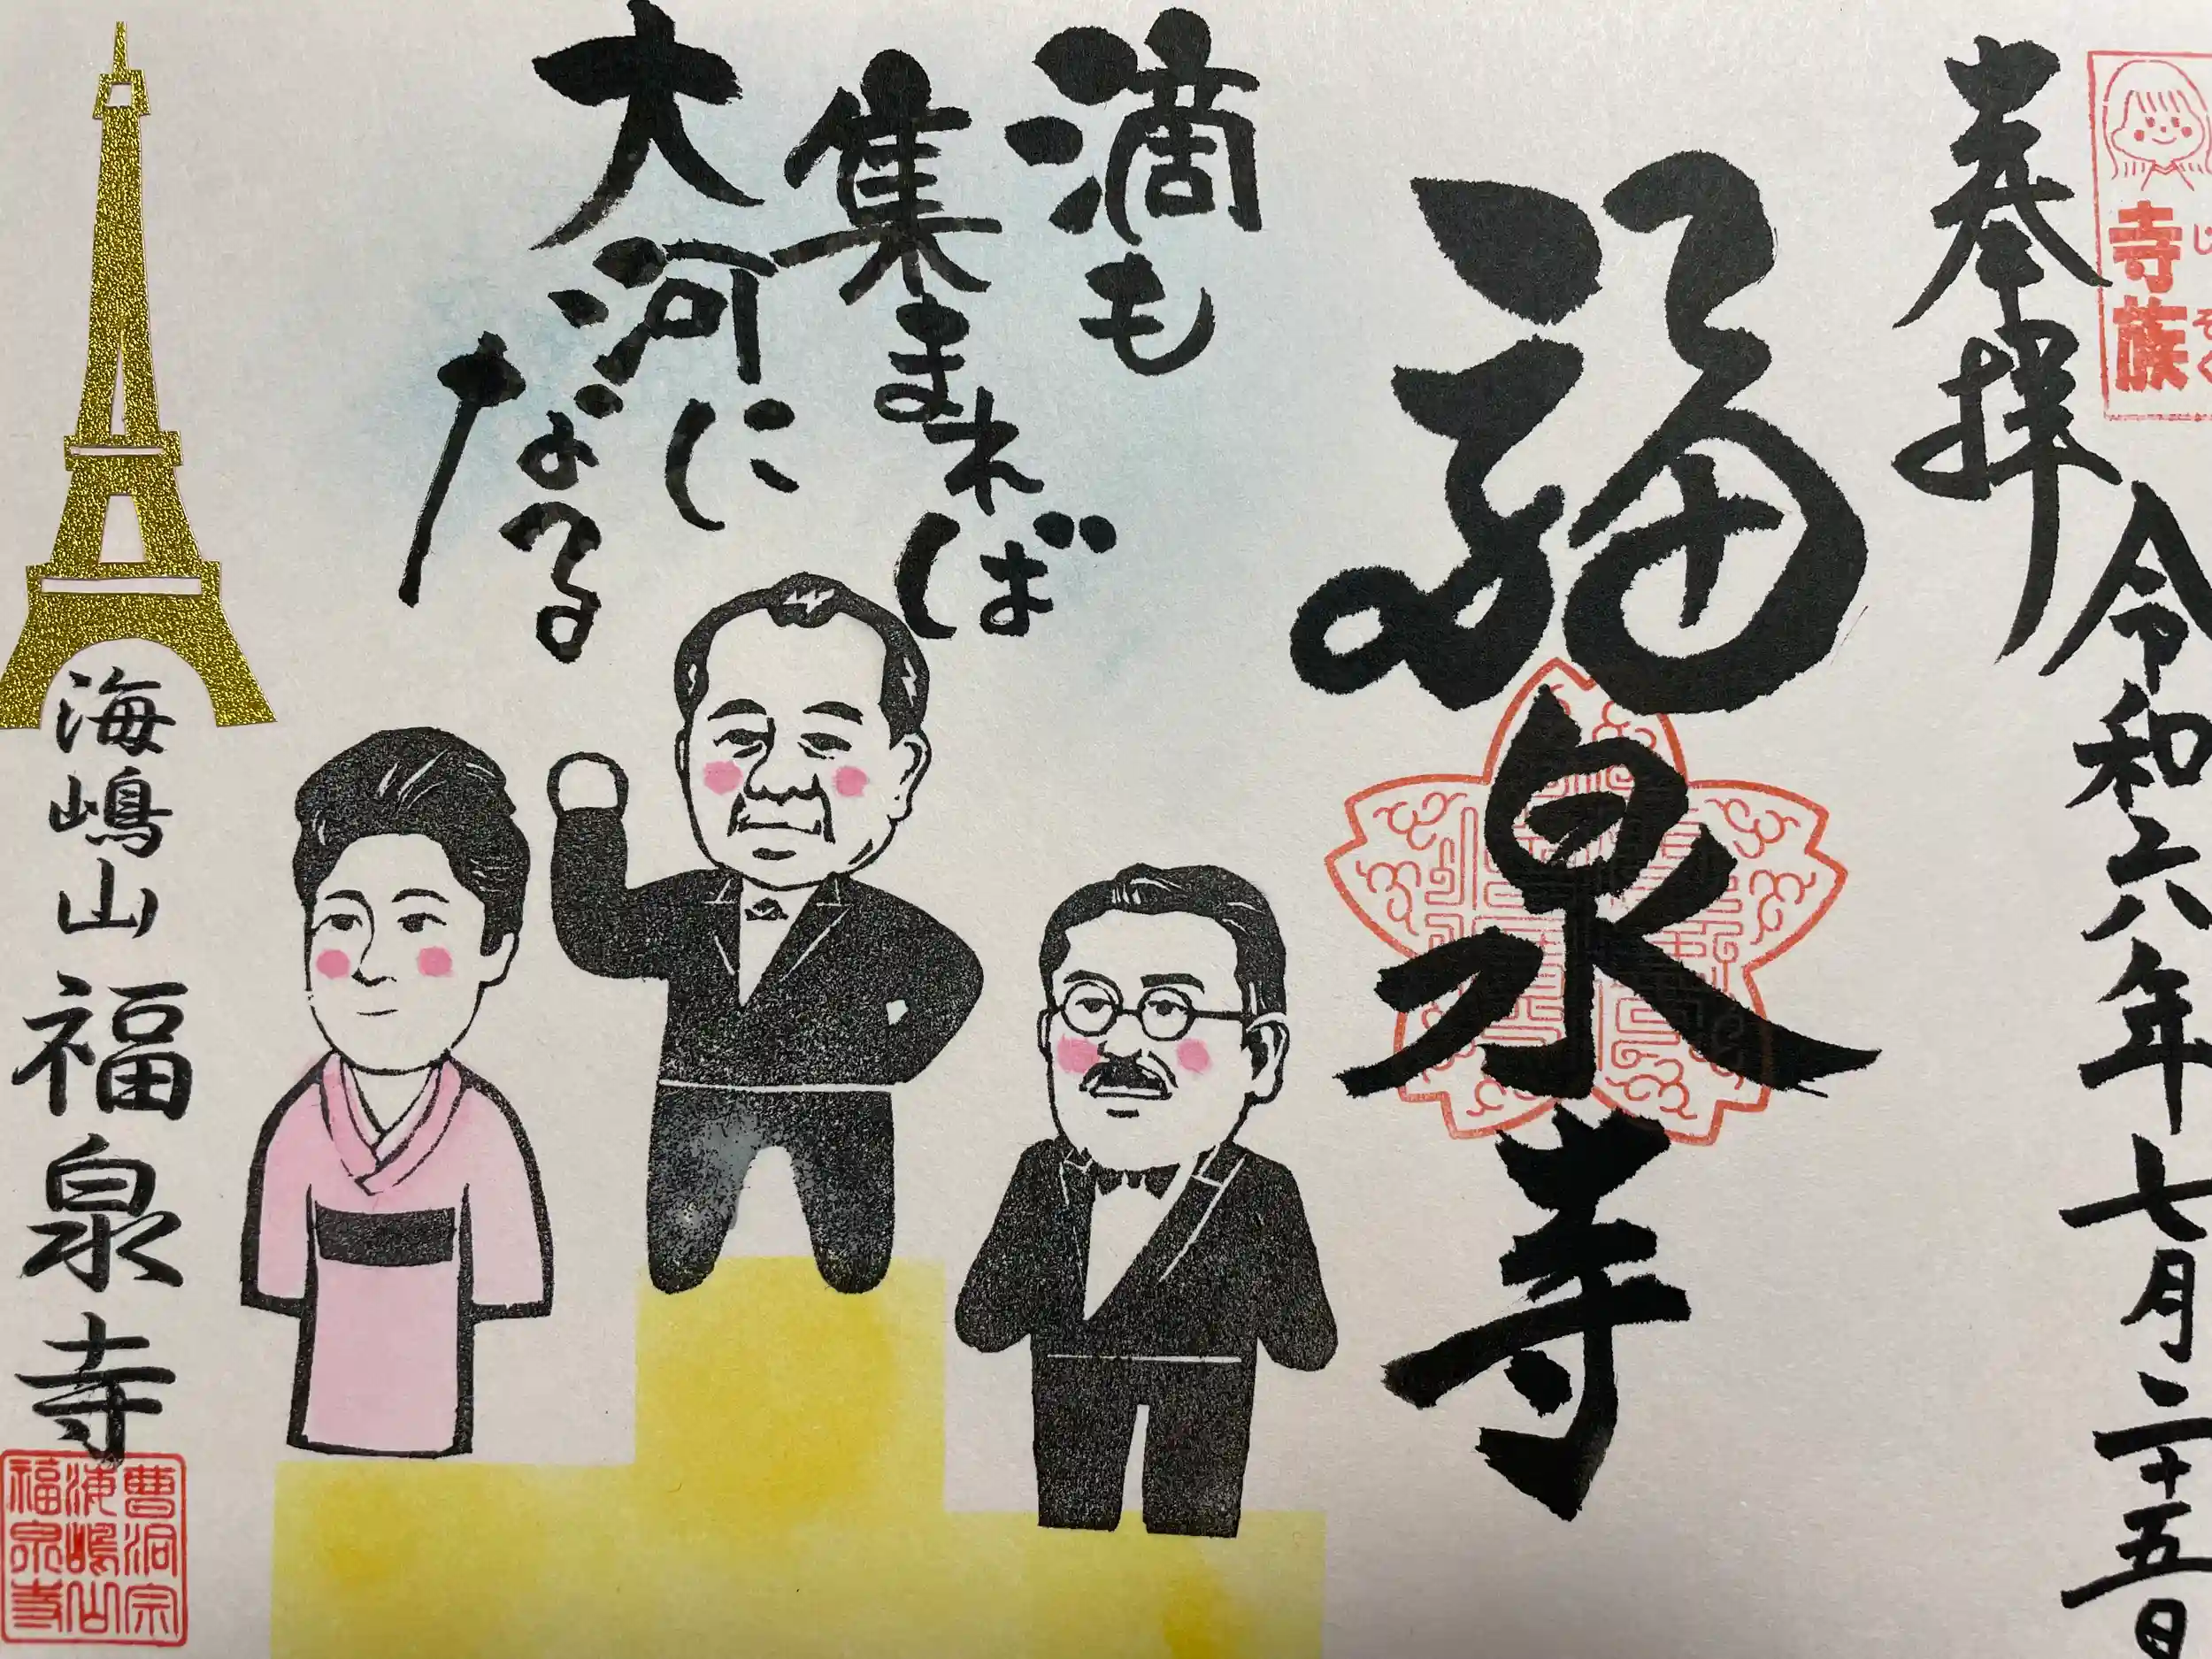 寺族
じ
ぞく
奉拝
令和六年七月二十五日
福泉寺
滴も
集まれば
大河に
なる
海嶋山 福泉寺
曹洞宗
海嶋山
福泉寺